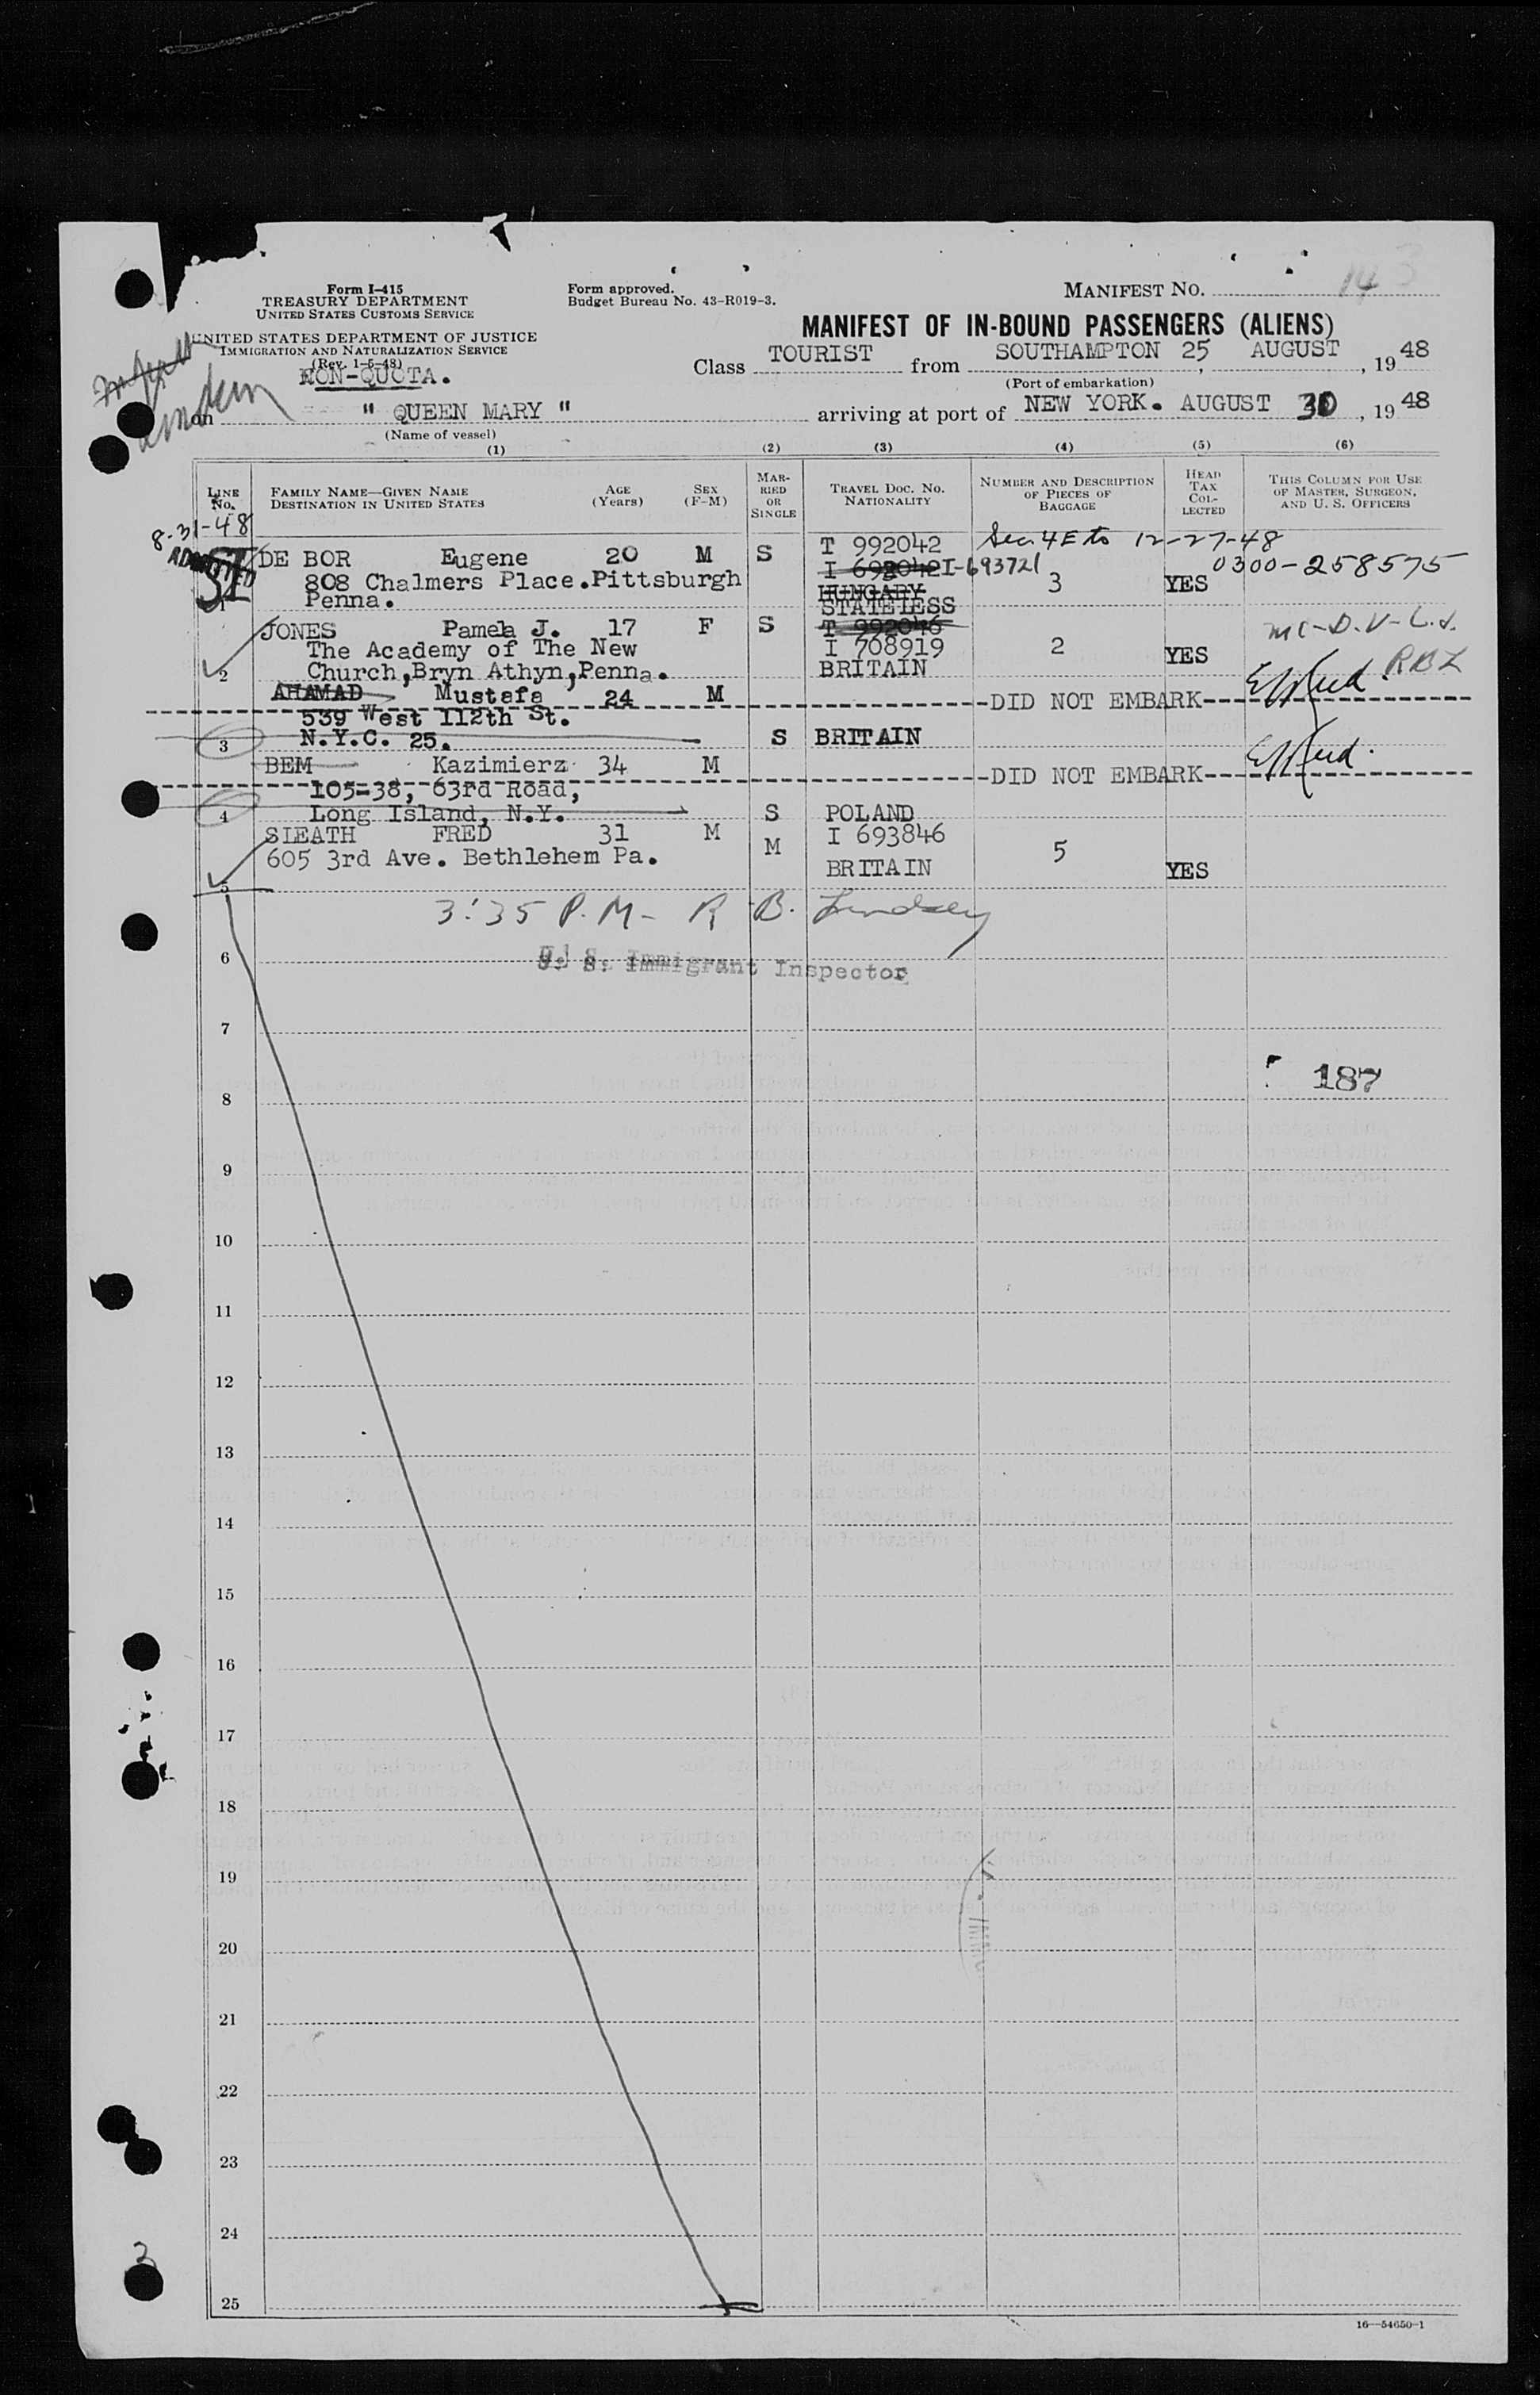 Form I-415
TREASURY DEPARTMENT
UNITED STATES CUSTOMS SERVICE
Form approved.
Budget Bureau No. 43-R019-3.
MANIFEST NO. 14 3
UNITED STATES DEPARTMENT OF JUSTICE
IMMIGRATION AND NATURALIZATION SERVICE
(Rev. 1-5-48)
MANIFEST OF IN-BOUND PASSENGERS (ALIENS)
NON-QUOTA.
Class TOURIST from SOUTHAMPTON 25 AUGUST, 1948
(Port of embarkation)
on " QUEEN MARY " arriving at port of NEW YORK. AUGUST 30, 1948
(Name of vessel)
(1) (2) (3) (4) (5) (6)
LINE No.
FAMILY NAME—GIVEN NAME
DESTINATION IN UNITED STATES
AGE (Years)
SEX (F-M)
MARRIED OR SINGLE
TRAVEL DOC. NO.
NATIONALITY
NUMBER AND DESCRIPTION OF PIECES OF BAGGAGE
HEAD TAX COLLECTED
THIS COLUMN FOR USE OF MASTER, SURGEON, AND U. S. OFFICERS
8-31-48
ADMITTED
SI
1 DE BOR Eugene 20 M S T 992042 Sec. 4E to 12-27-48
I 692042 I-693721 0300-258575
808 Chalmers Place.Pittsburgh HUNGARY 3 YES
Penna. STATELESS
2 JONES Pamela J. 17 F S T 992046 mc-D.V-L.s.
The Academy of The New I 708919 2 YES RBL
Church,Bryn Athyn,Penna. BRITAIN
3 AHAMAD Mustafa 24 M DID NOT EMBARK
539 West 112th St.
N.Y.C. 25. S BRITAIN
4 BEM Kazimierz 34 M DID NOT EMBARK
105-38, 63rd Road,
Long Island, N.Y. S POLAND
5 SLEATH FRED 31 M M I 693846 5
605 3rd Ave. Bethlehem Pa. BRITAIN YES
3:35 P.M- R B. Lindsey
6
U. S. Immigrant Inspector
7
187
8
9
10
11
12
13
14
15
16
17
18
19
20
21
22
23
24
25
2
16—54650-1